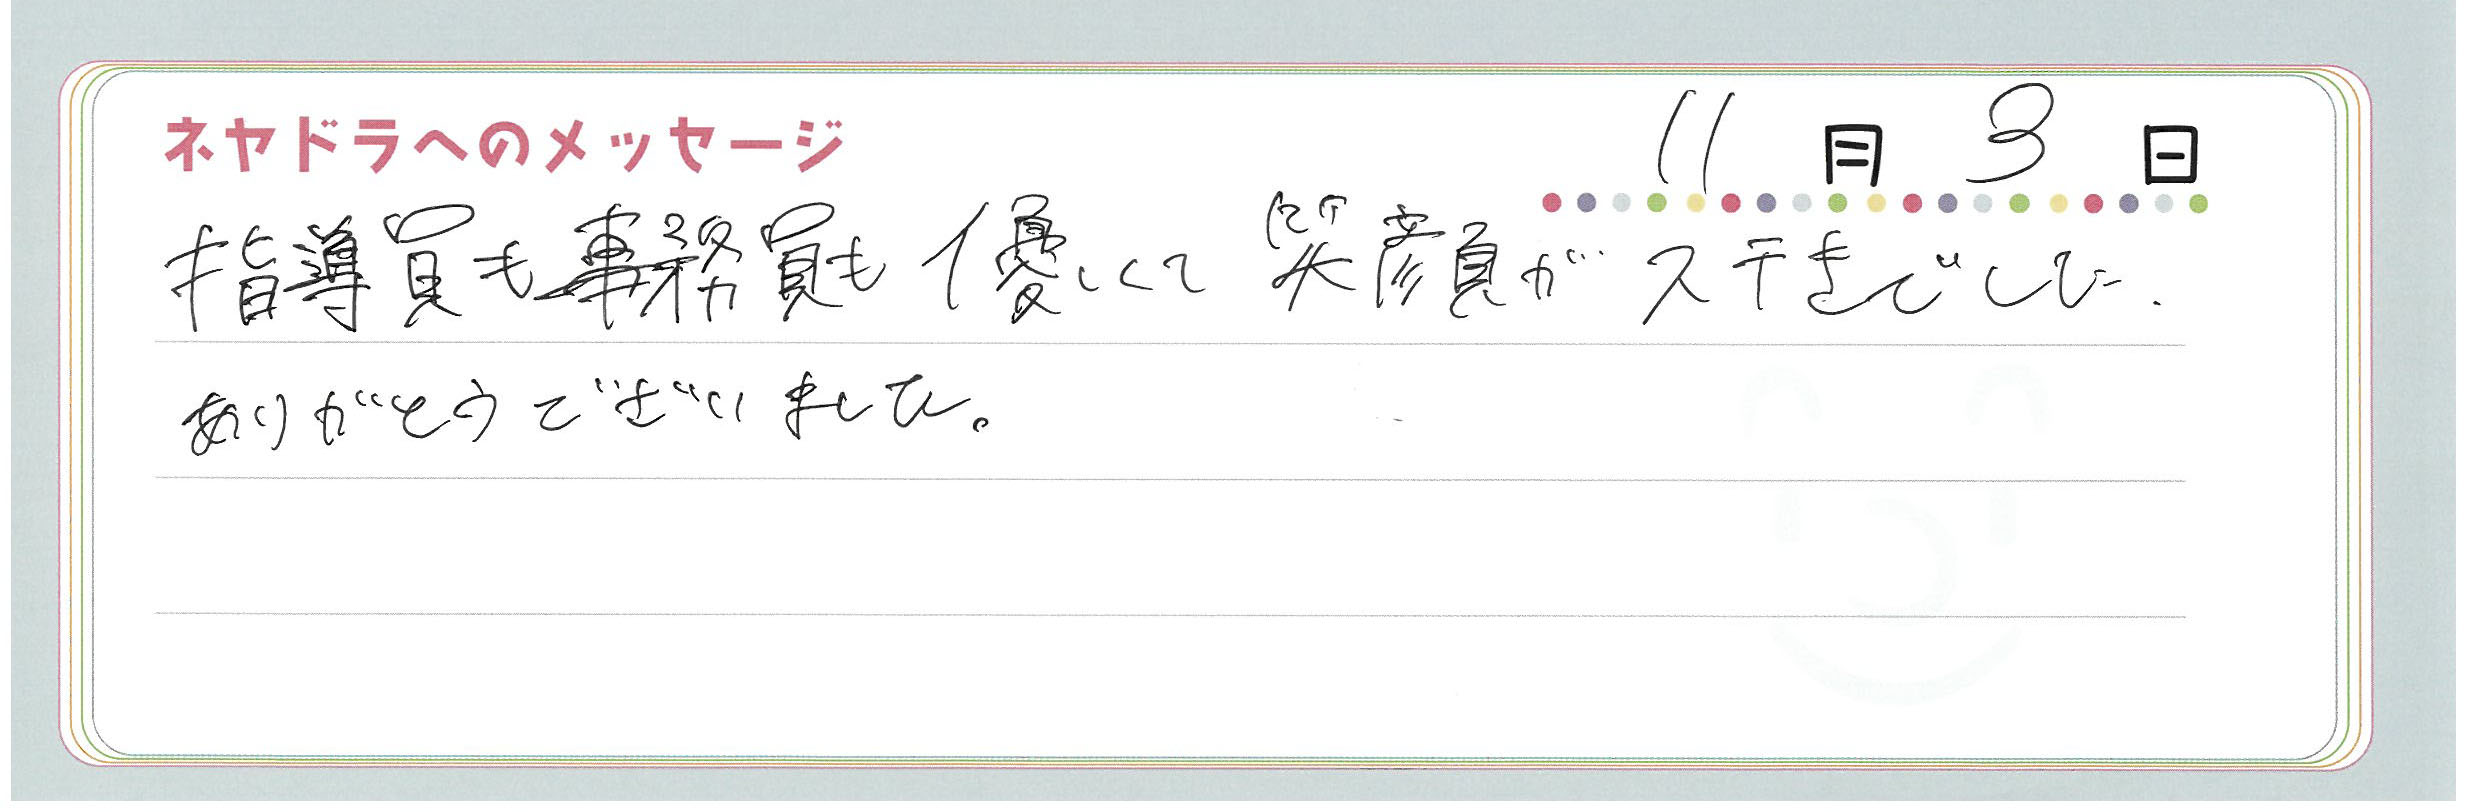 ネヤドラへのメッセージ
11月3日
指導員も事務員も優しくて 笑顔がステきでした.
ありがとうございました。